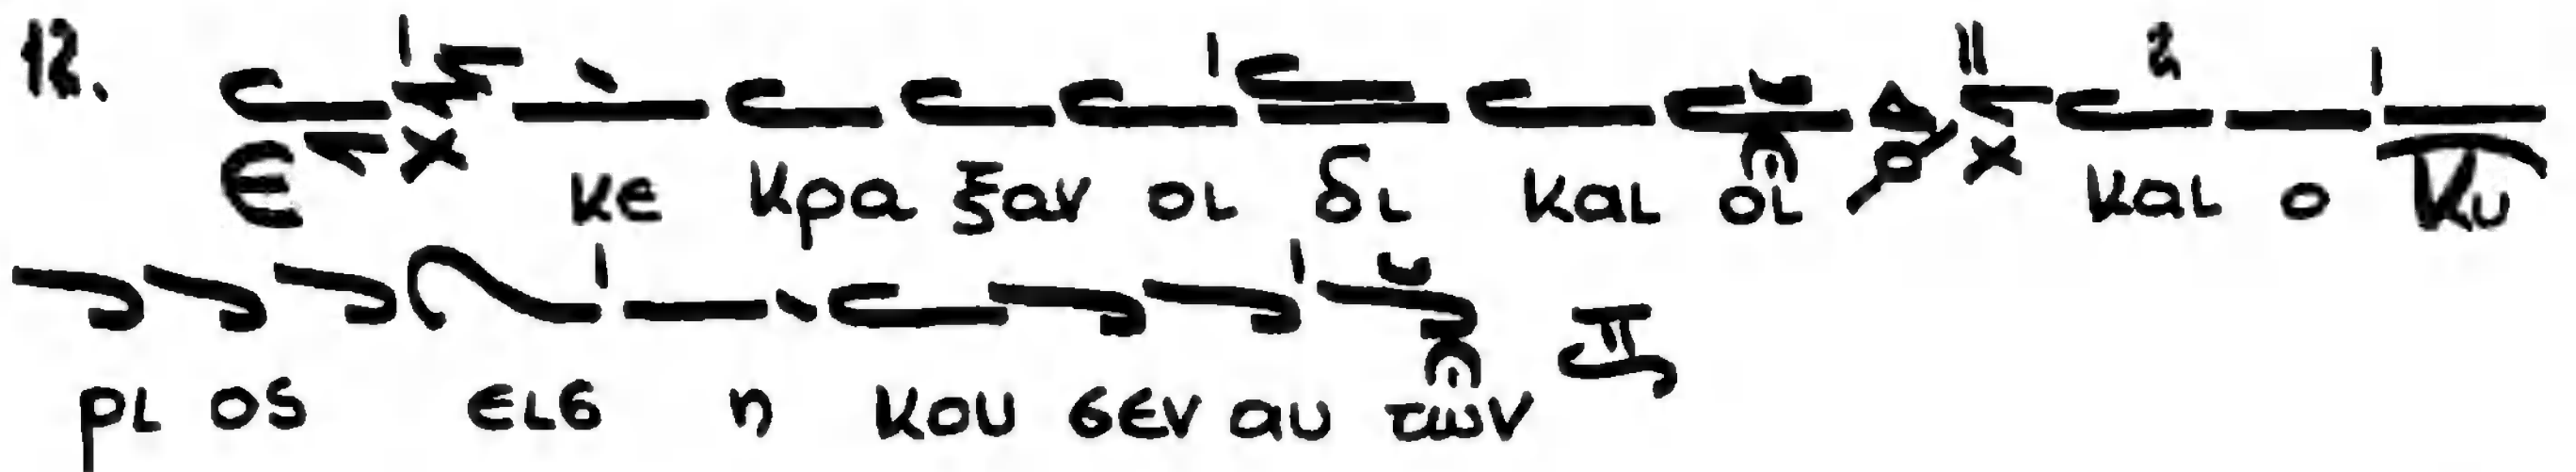 12.
ε κε κρα ξαν οι δι και οι και ο Κυ
ρι ος εισ η κου σεν αυ των